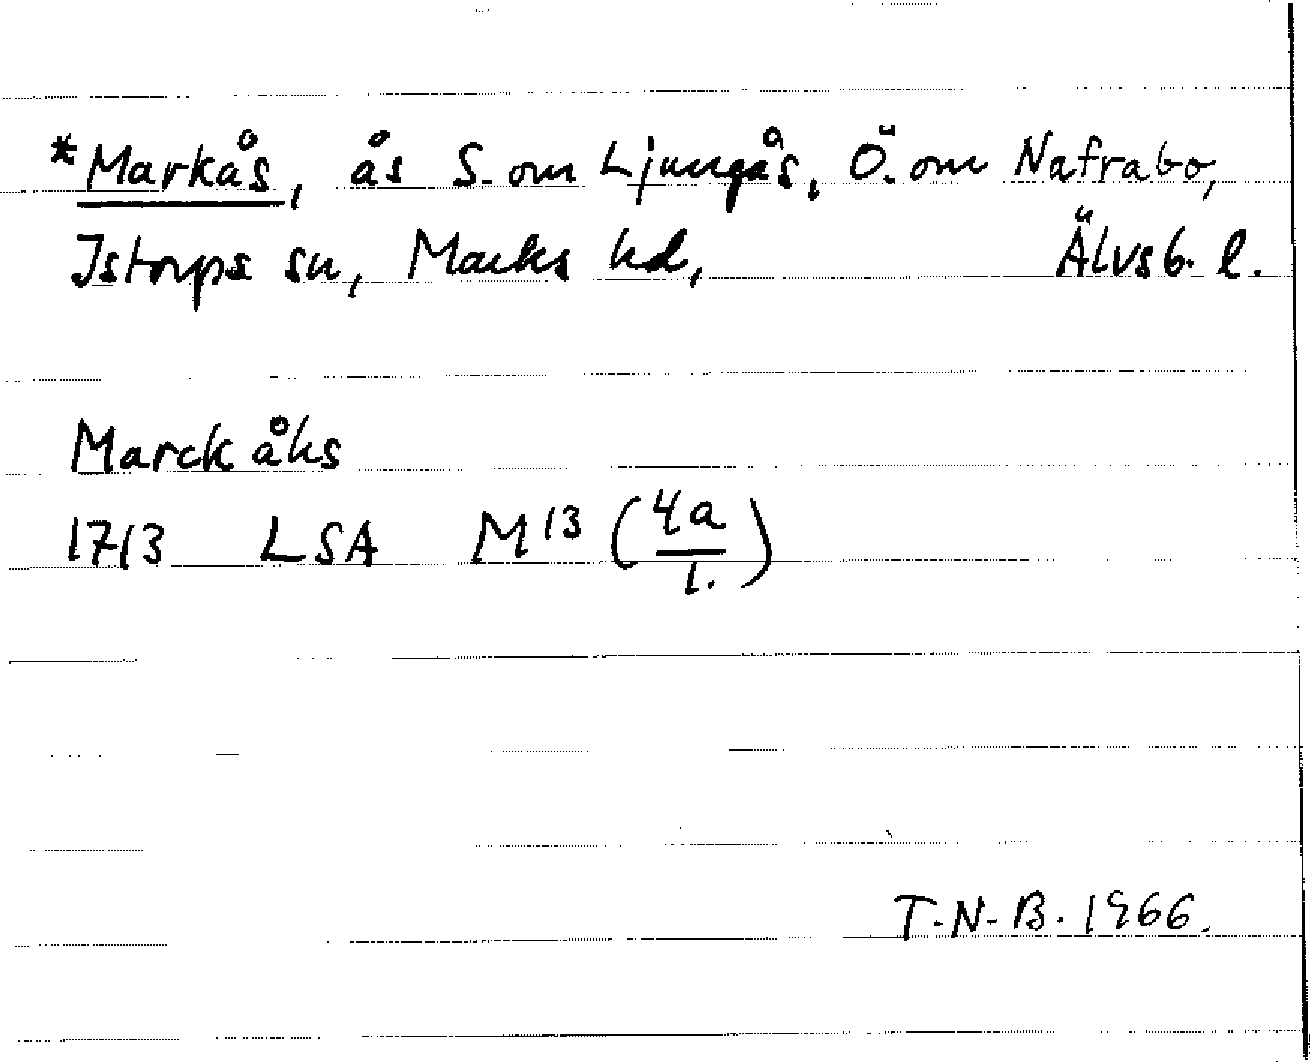 *Markås, ås S. om Ljungås, Ö. om Nafrabo,
Istorps sn, Marks hd, Älvsb. l.
Marck åhs
1713 LSA M13 (4a/1.)
T.N.B. 1966.